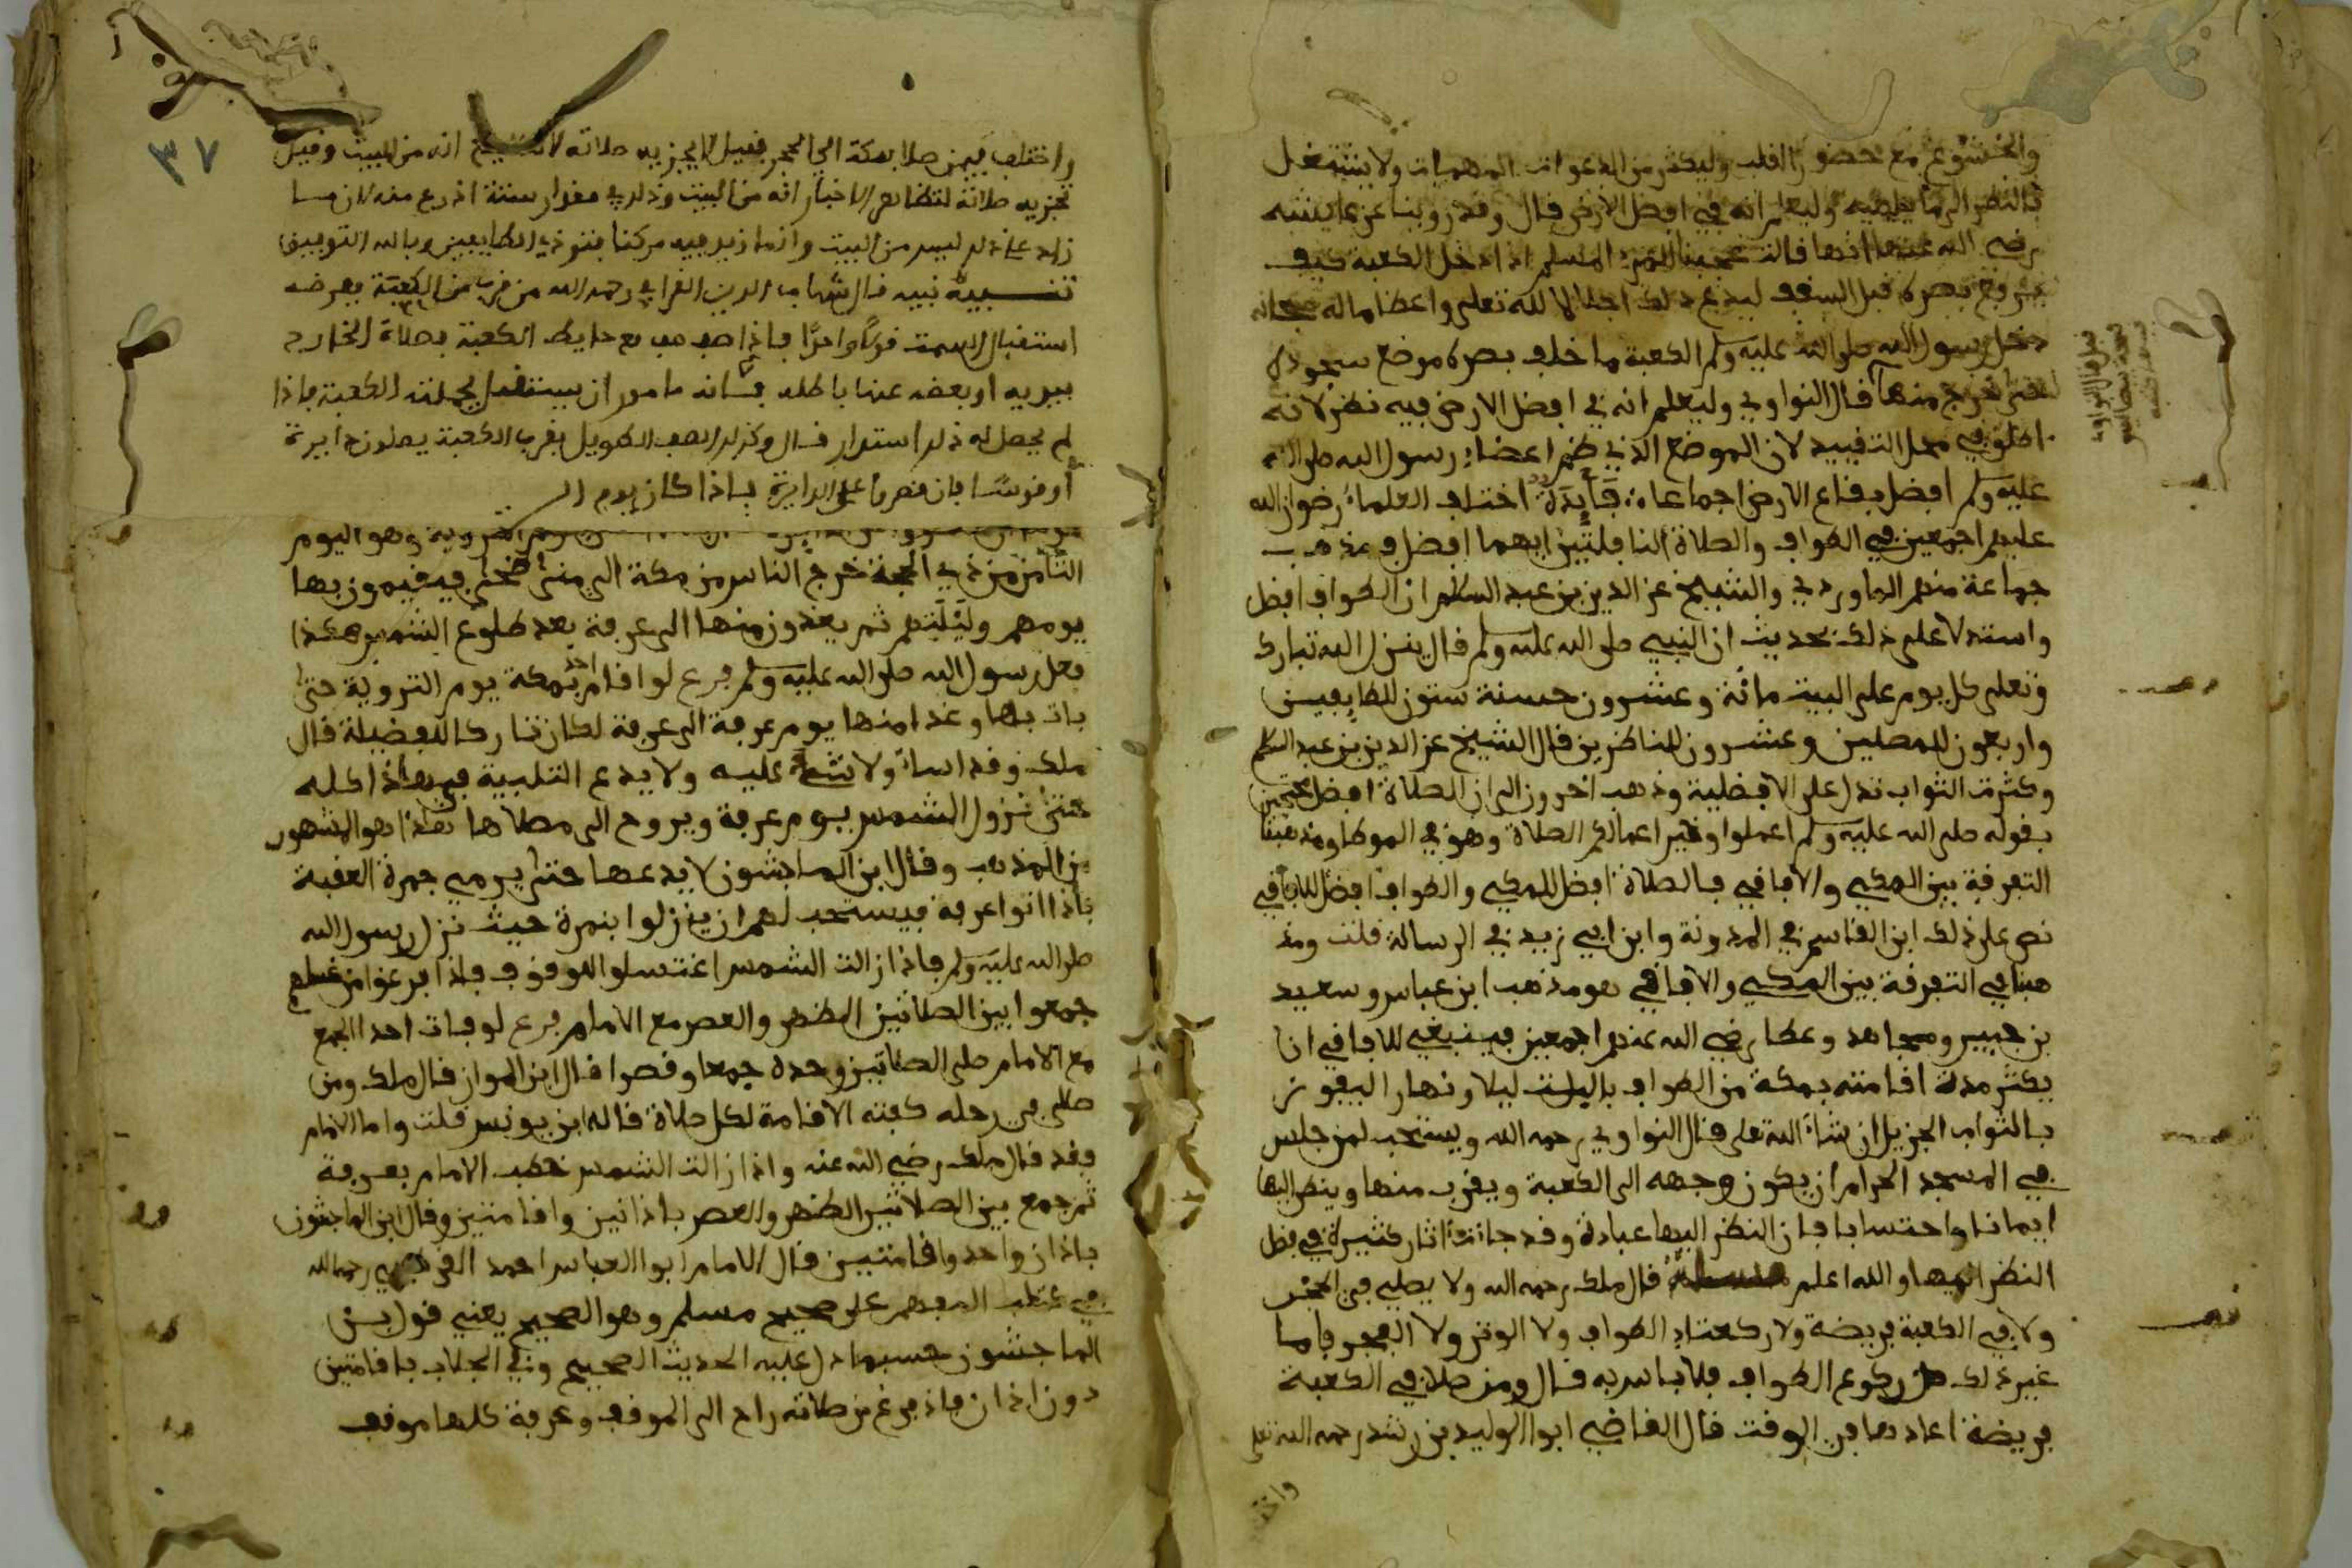 والخشوع مع حضور القلب وليكثر من الدعوات المهمات ولا يشتغل
بالنظر الى ما يلهيه وليعلم انه في افضل الارض قال وقد روينا عن عايشة
رضي الله عنها انها قالت عجبا للمرء المسلم اذا دخل الكعبة كيف
يرفع بصره قبل السقف ليدع ذلك اجلالا لله تعلى واعظاما له
دخل رسول الله صلى الله عليه وسلم الكعبة ما خلف بصره موضع سجوده
حتى خرج منها قال النواوي وليعلم انه في افضل الارض فيه نظر لانه
اطلق في محل التقييد لان الموضع الذي ضم اعضاء رسول الله صلى الله
عليه وسلم افضل بقاع الارض اجماعا فايدة اختلف العلماء رضوان الله
عليهم اجمعين في الطواف والصلاة النافلتين ايهما افضل فذهب
جماعة منهم الماوردي والشيخ عز الدين بن عبد السلام ان الطواف افضل
واستدلا على ذلك بحديث ان النبي صلى الله عليه وسلم قال ينزل الله تبارك
وتعلى كل يوم على البيت مائة وعشرون حسنة ستون للطايفين
واربعون للمصلين وعشرون للناظرين قال الشيخ عز الدين بن عبد السلام
وكثرت الثواب تدل على الافضلية وذهب اخرون الى ان الصلاة افضل محتجين
بقوله صلى الله عليه وسلم اعملوا وخير اعمالكم الصلاة وهو في الموطا ومذهبنا
التفرقة بين المكي والافاقي فالصلاة افضل للمكي والطواف افضل للافاقي
نص على ذلك ابن القاسم في المدونة وابن ابي زيد في الرسالة قلت ومذ
هبنا في التفرقة بين المكي والافاقي هو مذهب ابن عباس وسعيد
بن جبير ومجاهد وعطا رضي الله عنهم اجمعين فينبغي للافاقي ان
يكثر مدة اقامته بمكة من الطواف بالبيت ليلا ونهارا ليفوز
بالثواب الجزيل ان شاء الله تعلى قال النواوي رحمه الله ويستحب لمن جلس
في المسجد الحرام ان يكون وجهه الى الكعبة ويقرب منها وينظر اليها
ايمانا واحتسابا فان النظر اليها عبادة وقد جاءت اثار كثيرة في فضل
النظر اليها والله اعلم قال ملك رحمه الله ولا يصلي في الحجر
ولا في الكعبة فريضة ولا ركعتا الطواف ولا الوتر ولا الفجر فاما
غير ذلك من ركوع الطواف فلا باس به قال ومن صلا في الكعبة
فريضة اعادها في الوقت قال القاضي ابو الوليد بن رشد رحمه الله تعلى
٣٧
واختلف فيمن صلا بمكة الى الحجر فقيل لا يجزيه صلاته انه من البيت وقيل
تجزيه صلاته لتظاهر الاخبار انه من البيت وذلك في مقدار ستة اذرع منه لان ما
زاد على ذلك ليس من البيت وانما زيد فيه مركنا ينوذي الطايفين وبالله التوفيق
تنبيه نبيه قال شهاب الدين القرافي رحمه الله من قرب من الكعبة ففرضه
استقبال السمت قولا واحدا فاذا صف صف مع حايط الكعبة بصلاة الخارج
ببدنه او بعضه عنها باطلة فانه مامور ان يستقبل بجملته الكعبة فاذا
لم يحصل له ذلك استدار قال وكذلك الصف الطويل بقرب الكعبة يصلون دايرة
او قوسا فان قصروا على الدايرة فاذا كان يوم ال
التروية وهو اليوم
الثامن من ذي الحجة خرج الناس من مكة الى منى ضحى فيقيمون بها
يومهم وليلتهم ثم يغدون منها الى عرفة بعد طلوع الشمس هكذا
فعل رسول الله صلى الله عليه وسلم فرع لو اقام احد بمكة يوم التروية حتى
بات بها وغدا منها يوم عرفة الى عرفة لكان تاركا للفضيلة قال
ملك وقد اساء ولا شيء عليه ولا يدع التلبية في هذا كله
حتى تزول الشمس يوم عرفة ويروح الى مصلاها هذا هو المشهور
من المذهب وقال ابن الماجشون لا يدعها حتى يرمي جمرة العقبة
فاذا اتوا عرفة فيستحب لهم ان ينزلوا بنمرة حيث نزل رسول الله
صلى الله عليه وسلم فاذا زالت الشمس اغتسلوا للوقوف فاذا فرغوا من
جمعوا بين الصلاتين الظهر والعصر مع الامام فرع لو فات احدا الجمع
مع الامام صلى الصلاتين وحده جمعا وقصرا قال ابن المواز قال ملك ومن
صلى في رحله كفته الاقامة لكل صلاة قاله ابن يونس قلت واما الامام
فقد قال ملك رضي الله عنه واذا زالت الشمس خطب الامام بعرفة
ثم جمع بين الصلاتين الظهر والعصر باذانين واقامتين وقال ابن الماجشون
باذان واحد واقامتين قال الامام ابو العباس احمد القرطبي رحمه الله
في المفهم على صحيح مسلم وهو الصحيح يعني قول بن
الماجشون حسبما دل عليه الحديث الصحيح وفي الجلاب باقامتين
دون اذان فاذا فرغ من صلاته راح الى الموقف وعرفة كلها موقف